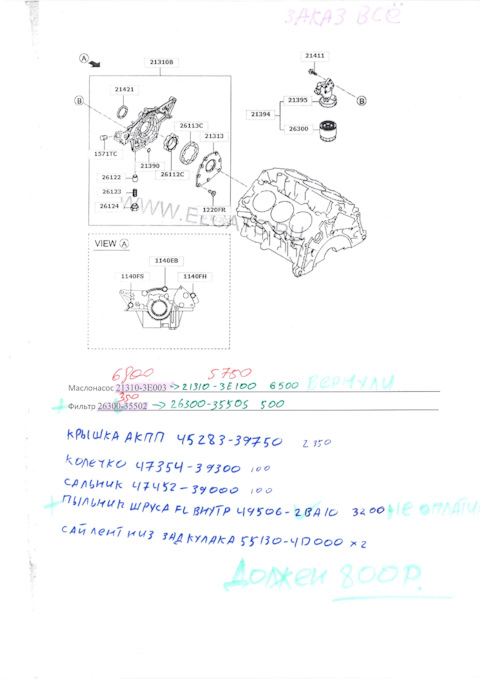 ЗАКАЗ ВСЁ
A
21310B
21411
21421
B
21395
B
26113C
21394
21313
26300
1571TC
21390
26122
26112C
26123
26124
1220FR
VIEW A
1140EB
1140FS
1140FH
6800 5750
Маслонасос 21310-3E003 -> 21310-3E100 6500 ВЕРНУЛИ
350
+ Фильтр 26300-35502 -> 26300-35505 500
КРЫШКА АКПП 45283-39750 2350
КОЛЕЧКО 47354-39300 100
САЛЬНИК 47452-39000 100
+ ПЫЛЬНИК ШРУСА FL ВНУТР 49506-2BA10 3200 НЕ ОПЛАТИЛ
САЙЛЕНТ НИЗ ЗАД КУЛАКА 55130-4D000 x2
ДОЛЖЕН 800Р.